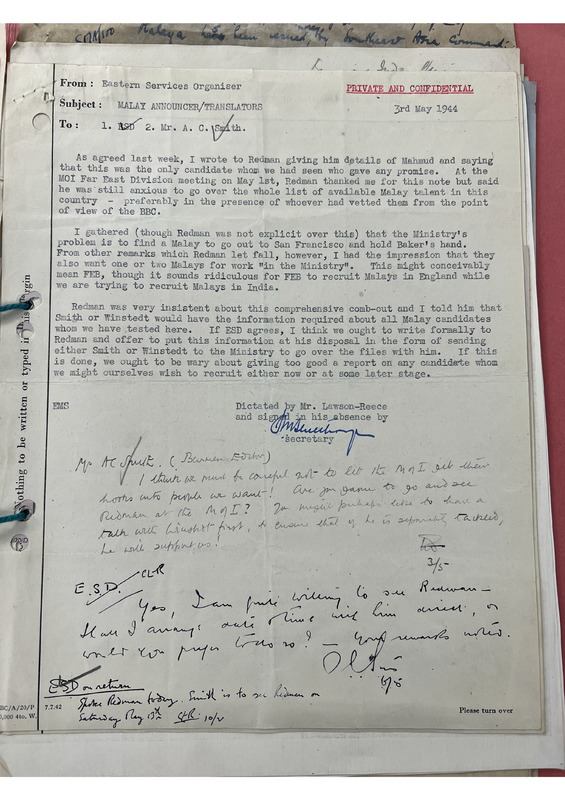 Malaya have been issued by Southeast Asia Command.
From : Eastern Services Organiser
PRIVATE AND CONFIDENTIAL
Subject : MALAY ANNOUNCER/TRANSLATORS
3rd May 1944
To : 1. ESD 2. Mr. A. C. Smith.
As agreed last week, I wrote to Redman giving him details of Mahmud and saying
that this was the only candidate whom we had seen who gave any promise. At the
MOI Far East Division meeting on May 1st, Redman thanked me for this note but said
he was still anxious to go over the whole list of available Malay talent in this
country - preferably in the presence of whoever had vetted them from the point
of view of the BBC.
I gathered (though Redman was not explicit over this) that the Ministry's
problem is to find a Malay to go out to San Francisco and hold Baker's hand.
From other remarks which Redman let fall, however, I had the impression that they
also want one or two Malays for work "in the Ministry". This might conceivably
mean FEB, though it sounds ridiculous for FEB to recruit Malays in England while
we are trying to recruit Malays in India.
Redman was very insistent about this comprehensive comb-out and I told him that
Smith or Winstedt would have the information required about all Malay candidates
whom we have tested here. If ESD agrees, I think we ought to write formally to
Redman and offer to put this information at his disposal in the form of sending
either Smith or Winstedt to the Ministry to go over the files with him. If this
is done, we ought to be wary about giving too good a report on any candidate whom
we might ourselves wish to recruit either now or at some later stage.
EMS
Dictated by Mr. Lawson-Reece
and signed in his absence by
Secretary
Mr AC Smith. (Burmese Editor)
I think we must be careful not to let the M of I get their
hooks into people we want! Are you game to go and see
Redman at the M of I? You might perhaps like to have a
talk with Winstedt first, to ensure that if he is separately tackled,
he will support us.
3/5
E.S.D. CLR
Yes, I am quite willing to see Redman —
Shall I arrange date & time with him direct, or
would you prefer to do so? — Your remarks noted.
ESD on return
Spoke Redman today. Smith is to see Redman on
Saturday May 13th CLR 10/5
Nothing to be written or typed in this margin
BC/A/20/P
0,000 4to. W.
7.7.42
Please turn over